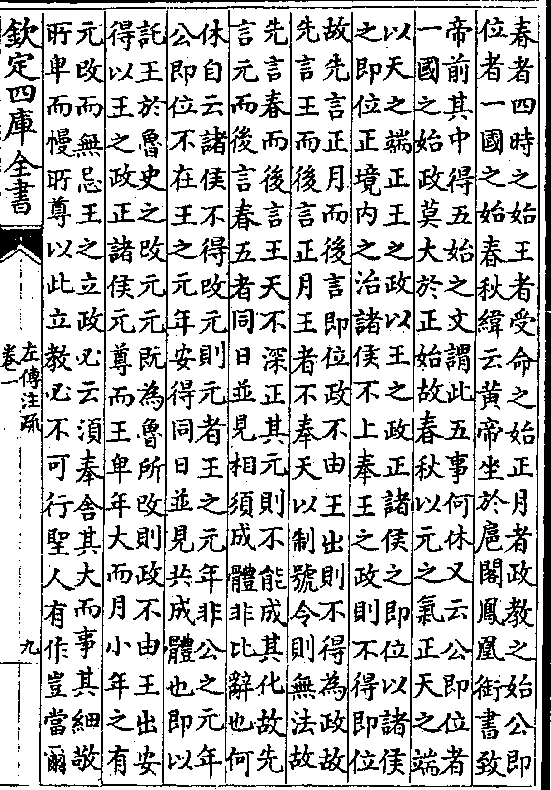 春者四時之始王者受命之始正月者政教之始公即
位者一國之始春秋緯云黄帝坐於扈閣鳳凰銜書致
帝前其中得五始之文謂此五事何休又云公即位者
一國之始政莫大於正始故春秋以元之氣正天之端
以天之端正王之政以王之政正諸侯之即位以諸侯
之即位正境内之治諸侯不上奉王之政則不得即位
故先言正月而後言即位政不由王出則不得為政故
先言王而後言正月王者不奉天以制號令則無法故
先言春而後言王天不深正其元則不能成其化故先
言元而後言春五者同日並見相須成體非比辭也何
休自云諸侯不得改元則元者王之元年非公之元年
公即位不在王之元年安得同日並見共成體也即以
託王於魯史之改元元既為魯所改則政不由王出安
得以王之政正諸侯元尊而王卑年大而月小年之有
元改而無忌王之立政必云須奉舍其大而事其細敬
所卑而慢所尊以此立教必不可行聖人有作豈當爾
欽定四庫全書
左傳注疏
卷一
九